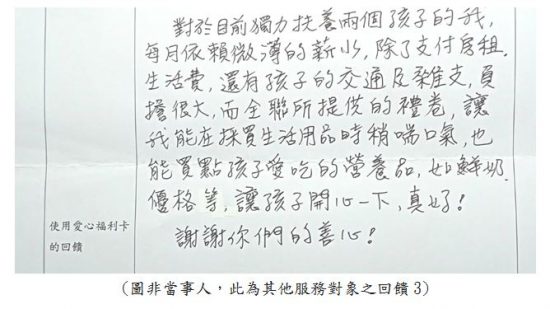 對於目前獨力扶養兩個孩子的我,
每月依賴微薄的薪水,除了支付房租.
生活費,還有孩子的交通及雜支,負
擔很大,而全聯所提供的禮卷,讓
我能在採買生活用品時稍喘口氣,也
能買點孩子愛吃的營養品,如鮮奶.
優格等,讓孩子開心一下,真好!
謝謝你們的善心!
使用愛心福利卡
的回饋
(圖非當事人,此為其他服務對象之回饋 3)